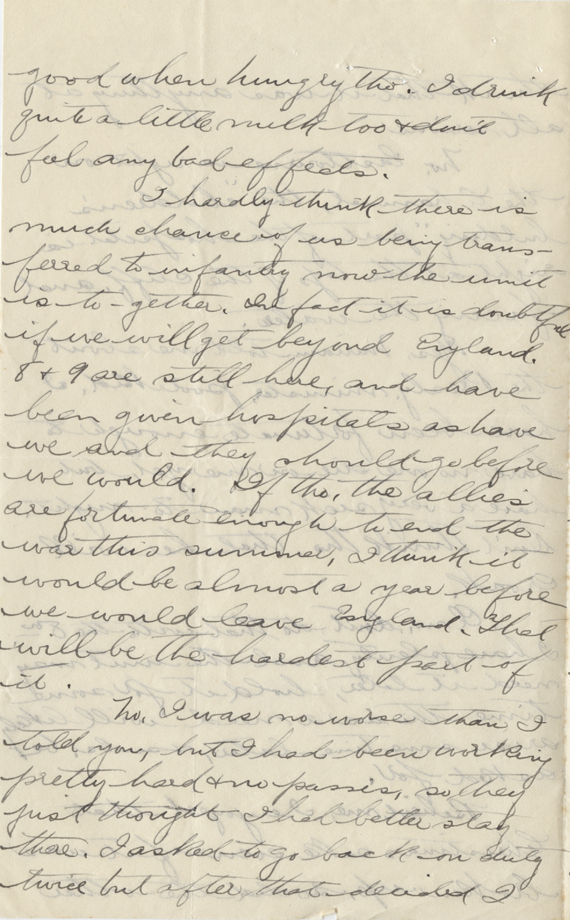 good when hungry tho. I drink
quite a little milk too & don't
feel any bad effects.
I hardly think there is
much chance of us being trans-
ferred to infantry now the unit
is to-gether. In fact it is doubtful
if we will get beyond England.
8 & 9 are still here, and have
been given hospitals as have
we and they should go before
we would. If tho, the allies
are fortunate enough to end the
war this summer, I think it
would be almost a year before
we would leave England. That
will be the hardest part of
it.
No, I was no worse than I
told you, but I had been working
pretty hard & no passes, so they
just thought I had better stay
there. I asked to go back on duty
twice but after that decided I